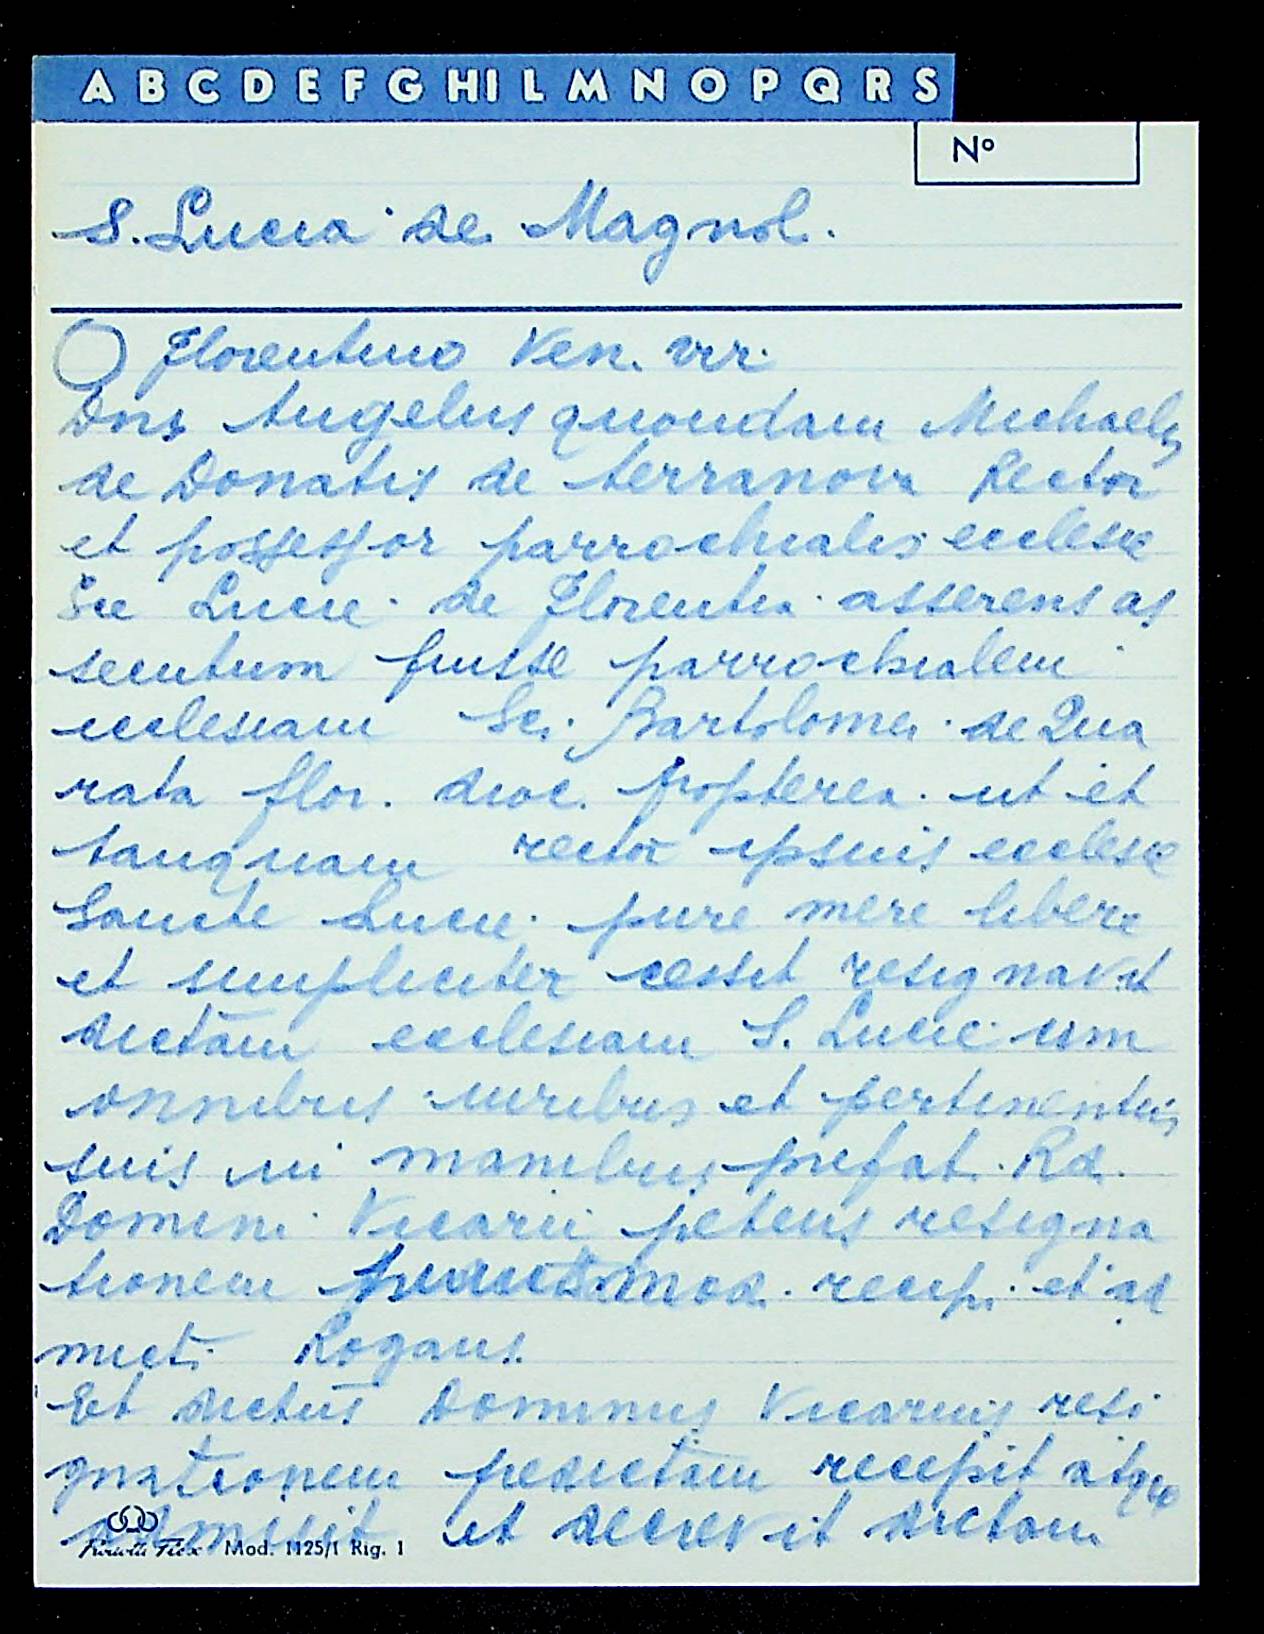 A B C D E F G HI L M N O P Q R S
Nº
S. Lucia de Magnol.
O Florentino Ven. vir.
Dns Angelus quondam Michaelis
de Donatis de terranova Rector
et possessor parrochialis ecclesie
Sce Lucie de Florentia asserens as
secutum fuisse parrochialem
ecclesiam Sci Bartolomei de Qua
rata flor. dioc. propterea ut et
tanquam rector ipsius ecclesie
Sancte Lucie pure mere libere
et simpliciter cessit resignavit
dictam ecclesiam S. Lucie cum
omnibus iuribus et pertinentiis
suis in manibus prefat. Rd.
Domini Vicarii petens resigna
tionem mod. recip. et ad
micti Rogans.
Et dictus Dominus Vicarius resi
gnationem predictam recepit atque
admisit et decrevit dictam
Mod. 1125/1 Rig. 1